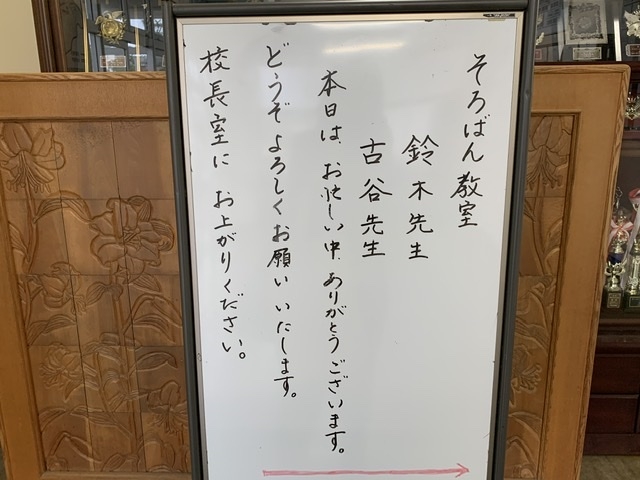 そろばん教室
鈴木先生
古谷先生
本日は、お忙しい中、ありがとうございます。
どうぞよろしくお願いいたします。
校長室にお上がりください。